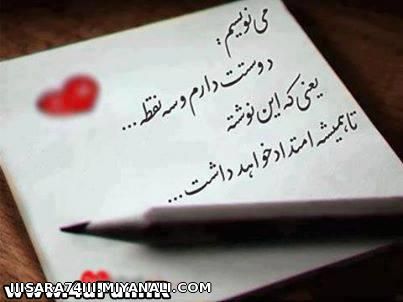 می نویسیم :
دوستت دارم و سه نقطه ...
یعنی که این نوشته
تا همیشه امتداد خواهد داشت ...
IIISARA74III.MIYANALI.COM